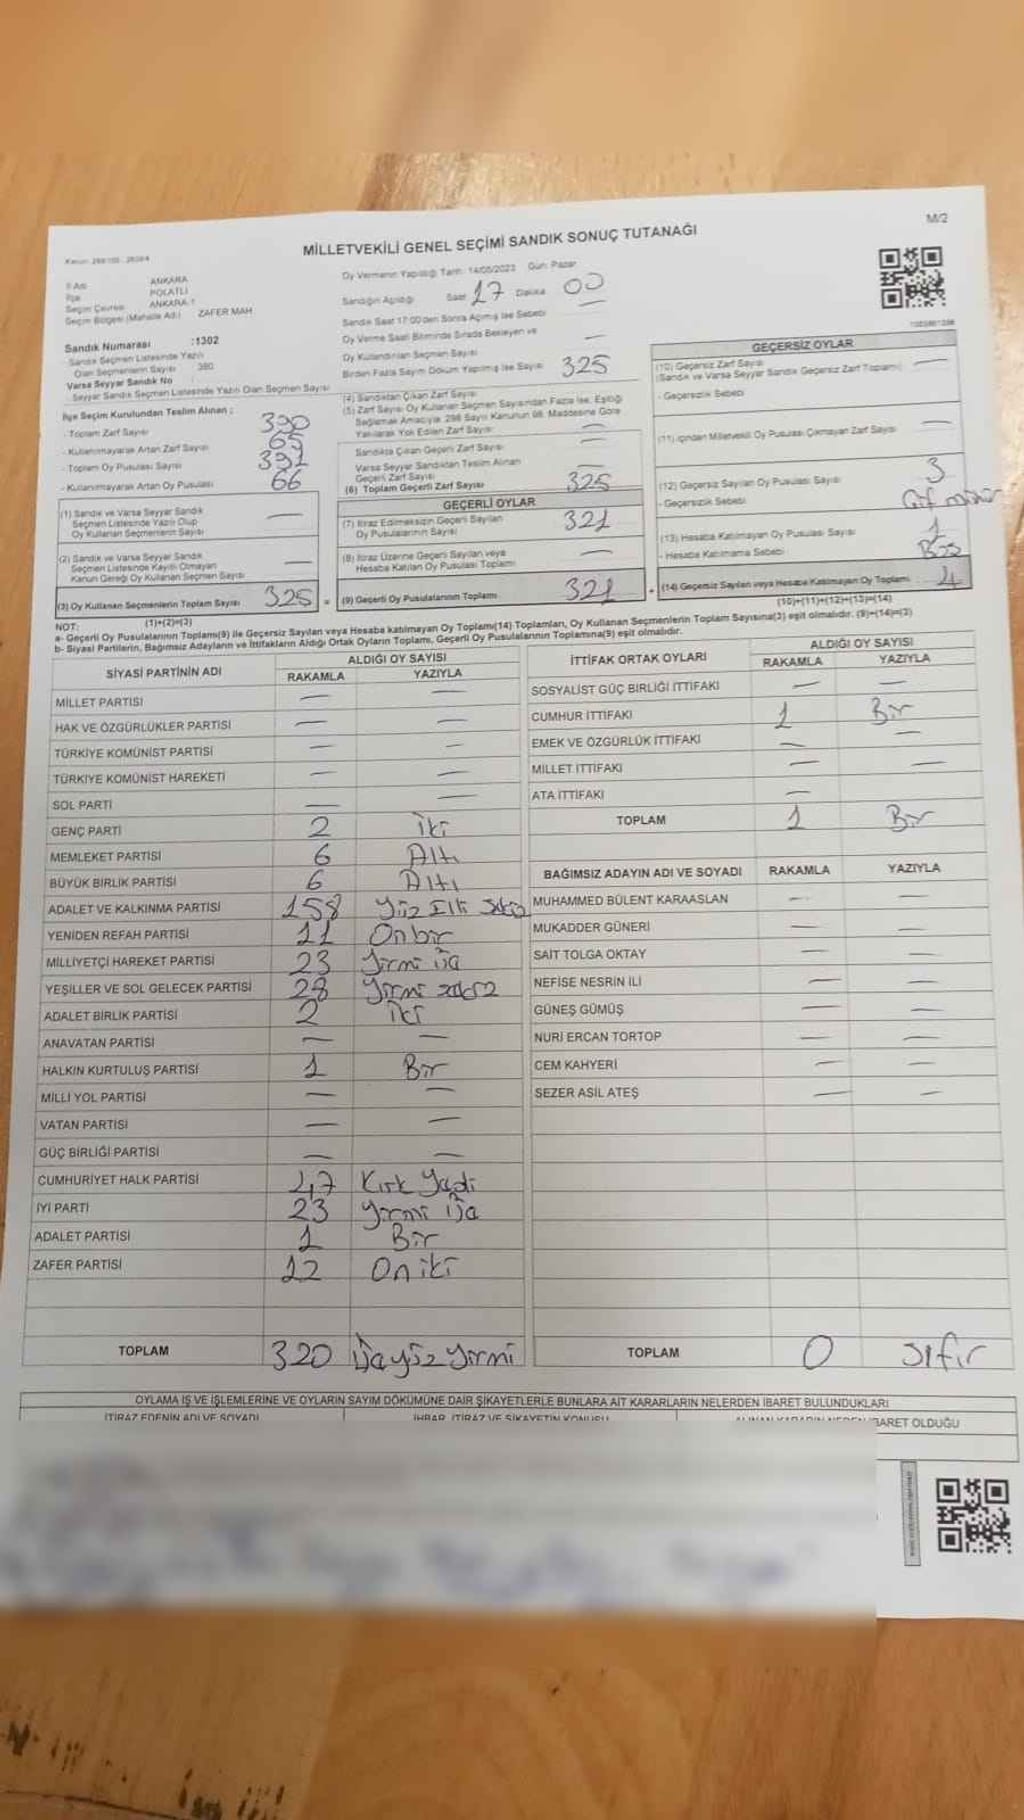 M/2
MİLLETVEKİLİ GENEL SEÇİMİ SANDIK SONUÇ TUTANAĞI
İl Adı ANKARA
İlçe POLATLI
Seçim Çevresi ANKARA-1
Seçim Bölgesi (Mahalle Adı) ZAFER MAH
Sandık Numarası :1302
Sandık Seçmen Listesinde Yazılı
Olan Seçmenlerin Sayısı 380
Varsa Seyyar Sandık No
Seyyar Sandık Seçmen Listesinde Yazılı Olan Seçmen Sayısı
İlçe Seçim Kurulundan Teslim Alınan ;
- Toplam Zarf Sayısı 390
- Kullanılmayarak Artan Zarf Sayısı 65
- Toplam Oy Pusulası Sayısı 391
- Kullanılmayarak Artan Oy Pusulası 66
(1) Sandık ve Varsa Seyyar Sandık
Seçmen Listesinde Yazılı Olup
Oy Kullanan Seçmenlerin Sayısı —
(2) Sandık ve Varsa Seyyar Sandık
Seçmen Listesinde Kayıtlı Olmayan
Kanun Gereği Oy Kullanan Seçmen Sayısı —
(3) Oy Kullanan Seçmenlerin Toplam Sayısı 325 =
(1)+(2)=(3)
Oy Vermenin Yapıldığı Tarih: 14/05/2023 Gün: Pazar
Sandığın Açıldığı Saat 17 Dakika 00
Sandık Saat 17:00'den Sonra Açılmış İse Sebebi —
Oy Verme Saati Bitiminde Sırada Bekleyen ve
Oy Kullandırılan Seçmen Sayısı —
Birden Fazla Sayım Döküm Yapılmış İse Sayısı
(4) Sandıktan Çıkan Zarf Sayısı 325
(5) Zarf Sayısı Oy Kullanan Seçmen Sayısından Fazla İse, Eşitliği
Sağlamak Amacıyla 298 Sayılı Kanunun 98. Maddesine Göre
Yakılarak Yok Edilen Zarf Sayısı —
Sandıkta Çıkan Geçerli Zarf Sayısı —
Varsa Seyyar Sandıktan Teslim Alınan
Geçerli Zarf Sayısı —
(6) Toplam Geçerli Zarf Sayısı 325
GEÇERLİ OYLAR
(7) İtiraz Edilmeksizin Geçerli Sayılan
Oy Pusulalarının Sayısı 321
(8) İtiraz Üzerine Geçerli Sayılan veya
Hesaba Katılan Oy Pusulası Toplamı —
(9) Geçerli Oy Pusulalarının Toplamı 321 +
GEÇERSİZ OYLAR
(10) Geçersiz Zarf Sayısı
(Sandık ve Varsa Seyyar Sandık Geçersiz Zarf Toplamı) —
- Geçersizlik Sebebi
(11) İçinden Milletvekili Oy Pusulası Çıkmayan Zarf Sayısı —
(12) Geçersiz Sayılan Oy Pusulası Sayısı 3
- Geçersizlik Sebebi Çif mühür
(13) Hesaba Katılmayan Oy Pusulası Sayısı 1
- Hesaba Katılmama Sebebi Boş
(14) Geçersiz Sayılan veya Hesaba Katılmayan Oy Toplamı 4
(10)+(11)+(12)+(13)=(14)
NOT:
a- Geçerli Oy Pusulalarının Toplamı(9) ile Geçersiz Sayılan veya Hesaba katılmayan Oy Toplamı(14) Toplamları, Oy Kullanan Seçmenlerin Toplam Sayısına(3) eşit olmalıdır. (9)+(14)=(3)
b- Siyasi Partilerin, Bağımsız Adayların ve İttifakların Aldığı Ortak Oyların Toplamı, Geçerli Oy Pusulalarının Toplamına(9) eşit olmalıdır.
SİYASİ PARTİNİN ADI ALDIĞI OY SAYISI
RAKAMLA YAZIYLA
MİLLET PARTİSİ — —
HAK VE ÖZGÜRLÜKLER PARTİSİ — —
TÜRKİYE KOMÜNİST PARTİSİ — —
TÜRKİYE KOMÜNİST HAREKETİ — —
SOL PARTİ — —
GENÇ PARTİ 2 İki
MEMLEKET PARTİSİ 6 Altı
BÜYÜK BİRLİK PARTİSİ 6 Altı
ADALET VE KALKINMA PARTİSİ 158 Yüz Elli Sekiz
YENİDEN REFAH PARTİSİ 11 Onbir
MİLLİYETÇİ HAREKET PARTİSİ 23 Yirmi Üç
YEŞİLLER VE SOL GELECEK PARTİSİ 28 Yirmi sekiz
ADALET BİRLİK PARTİSİ 2 İki
ANAVATAN PARTİSİ — —
HALKIN KURTULUŞ PARTİSİ 1 Bir
MİLLİ YOL PARTİSİ — —
VATAN PARTİSİ — —
GÜÇ BİRLİĞİ PARTİSİ — —
CUMHURİYET HALK PARTİSİ 47 Kırk Yedi
İYİ PARTİ 23 Yirmi Üç
ADALET PARTİSİ 1 Bir
ZAFER PARTİSİ 12 Oniki
TOPLAM 320 Üçyüz Yirmi
İTTİFAK ORTAK OYLARI ALDIĞI OY SAYISI
RAKAMLA YAZIYLA
SOSYALİST GÜÇ BİRLİĞİ İTTİFAKI — —
CUMHUR İTTİFAKI 1 Bir
EMEK VE ÖZGÜRLÜK İTTİFAKI — —
MİLLET İTTİFAKI — —
ATA İTTİFAKI —
TOPLAM 1 Bir
BAĞIMSIZ ADAYIN ADI VE SOYADI RAKAMLA YAZIYLA
MUHAMMED BÜLENT KARAASLAN — —
MUKADDER GÜNERİ — —
SAİT TOLGA OKTAY — —
NEFİSE NESRİN İLİ — —
GÜNEŞ GÜMÜŞ — —
NURİ ERCAN TORTOP — —
CEM KAHYERİ — —
SEZER ASİL ATEŞ — —
TOPLAM 0 Sıfır
OYLAMA İŞ VE İŞLEMLERİNE VE OYLARIN SAYIM DÖKÜMÜNE DAİR ŞİKAYETLERLE BUNLARA AİT KARARLARIN NELERDEN İBARET BULUNDUKLARI
İTİRAZ EDENİN ADI VE SOYADI İHBAR, İTİRAZ VE ŞİKAYETİN KONUSU ALINAN KARARIN NEDEN İBARET OLDUĞU